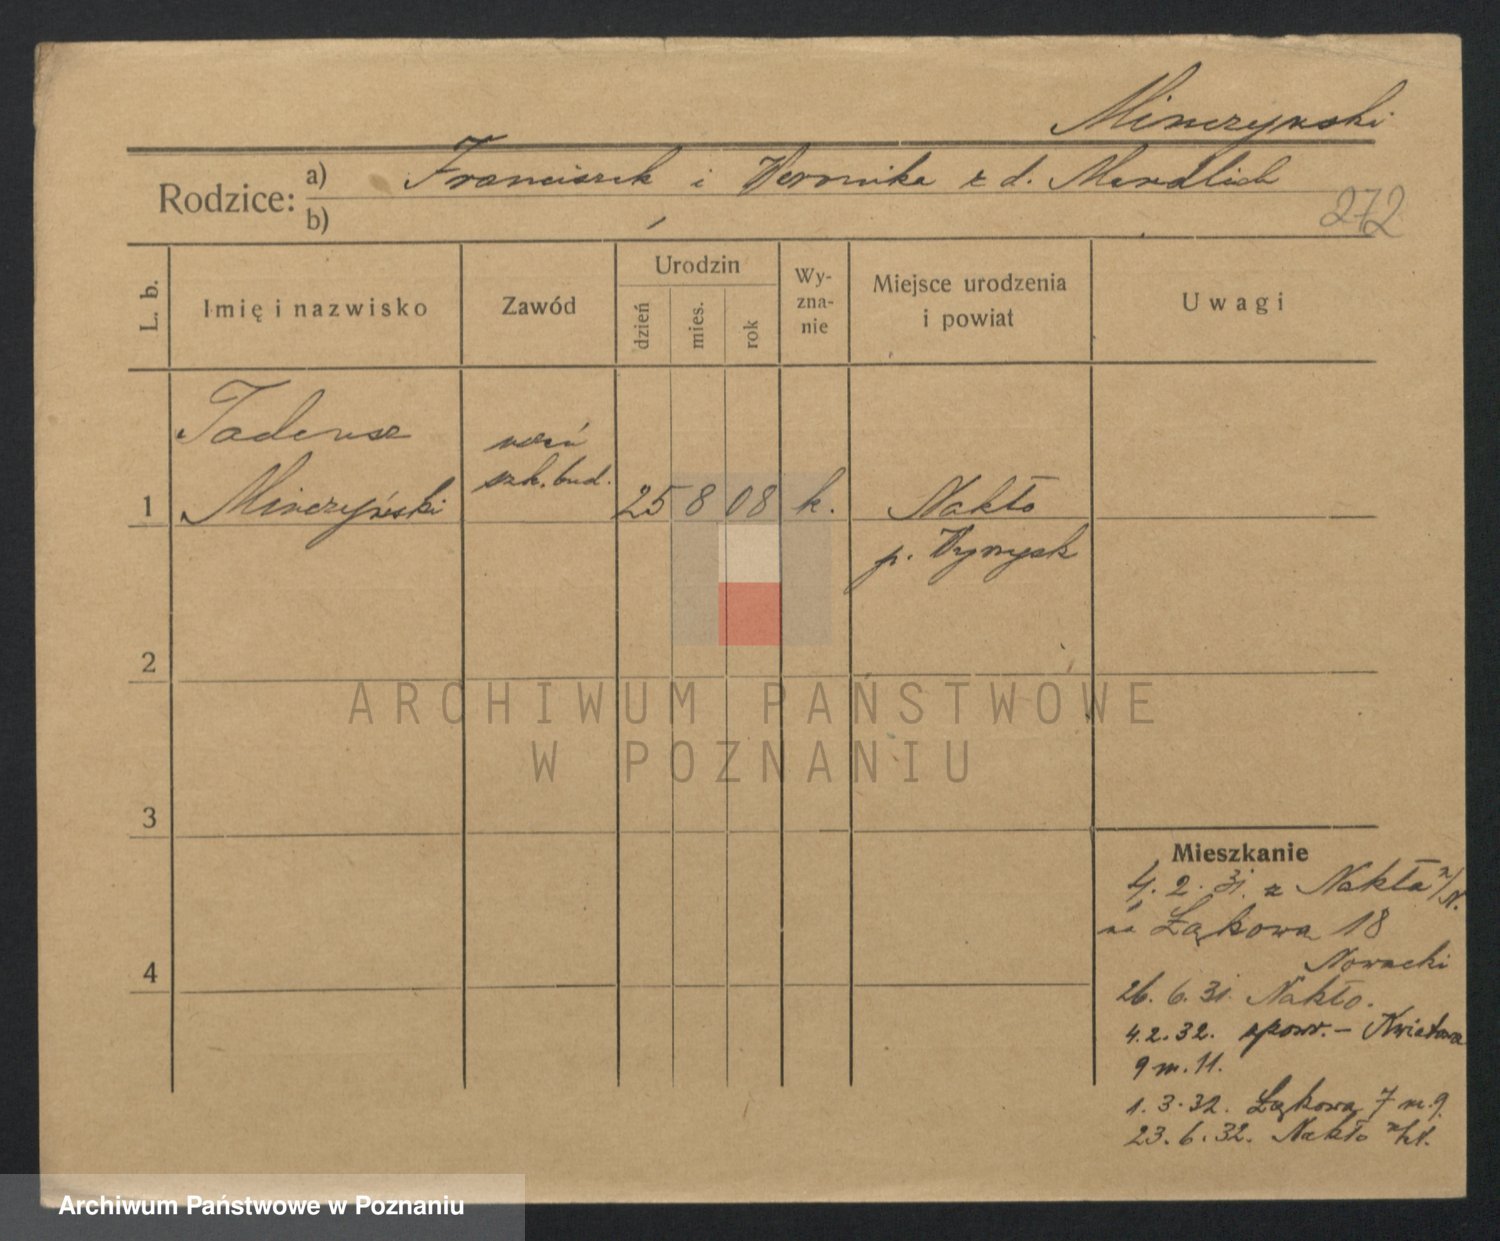 Minczyński
Rodzice:
a) Franciszek i Weronika z d. Mendlich
b)
272
L. b.
Imię i nazwisko
Zawód
Urodzin
dzień
mies.
rok
Wy-
zna-
nie
Miejsce urodzenia
i powiat
Uwagi
Tadeusz
uczeń
szk. bud.
1 Minczyński 25 8 08 k. Nakło
p. Wyrzysk
2
3
4
ARCHIWUM PAŃSTWOWE
W POZNANIU
Mieszkanie
4. 2. 31. z Nakła n/N.
na Łąkowa 18
Nowacki
26. 6. 31 Nakło.
4.2.32. spowr. – Kwiatowa
9 m. 11.
1. 3. 32. Łąkowa 7 m. 9.
23. 6. 32. Nakło
Archiwum Państwowe w Poznaniu